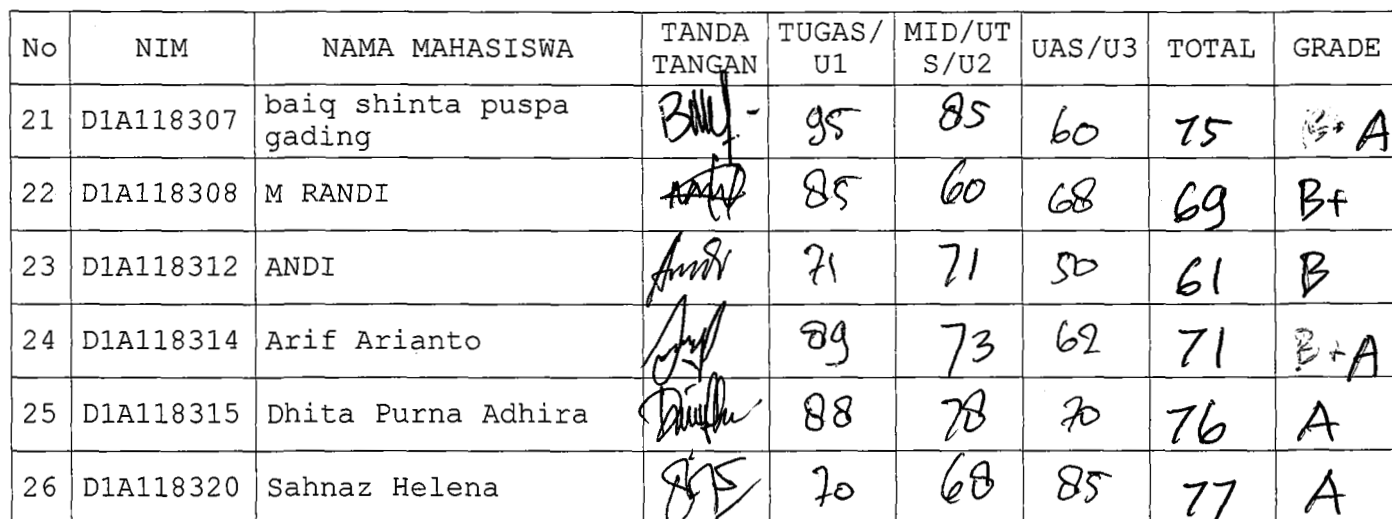 No NIM NAMA MAHASISWA TANDA TANGAN TUGAS/U1 MID/UTS/U2 UAS/U3 TOTAL GRADE
21 D1A118307 baiq shinta puspa gading 95 85 60 75 B+ A
22 D1A118308 M RANDI 85 60 68 69 B+
23 D1A118312 ANDI 71 71 50 61 B
24 D1A118314 Arif Arianto 89 73 62 71 B+ A
25 D1A118315 Dhita Purna Adhira 88 78 70 76 A
26 D1A118320 Sahnaz Helena 70 68 85 77 A